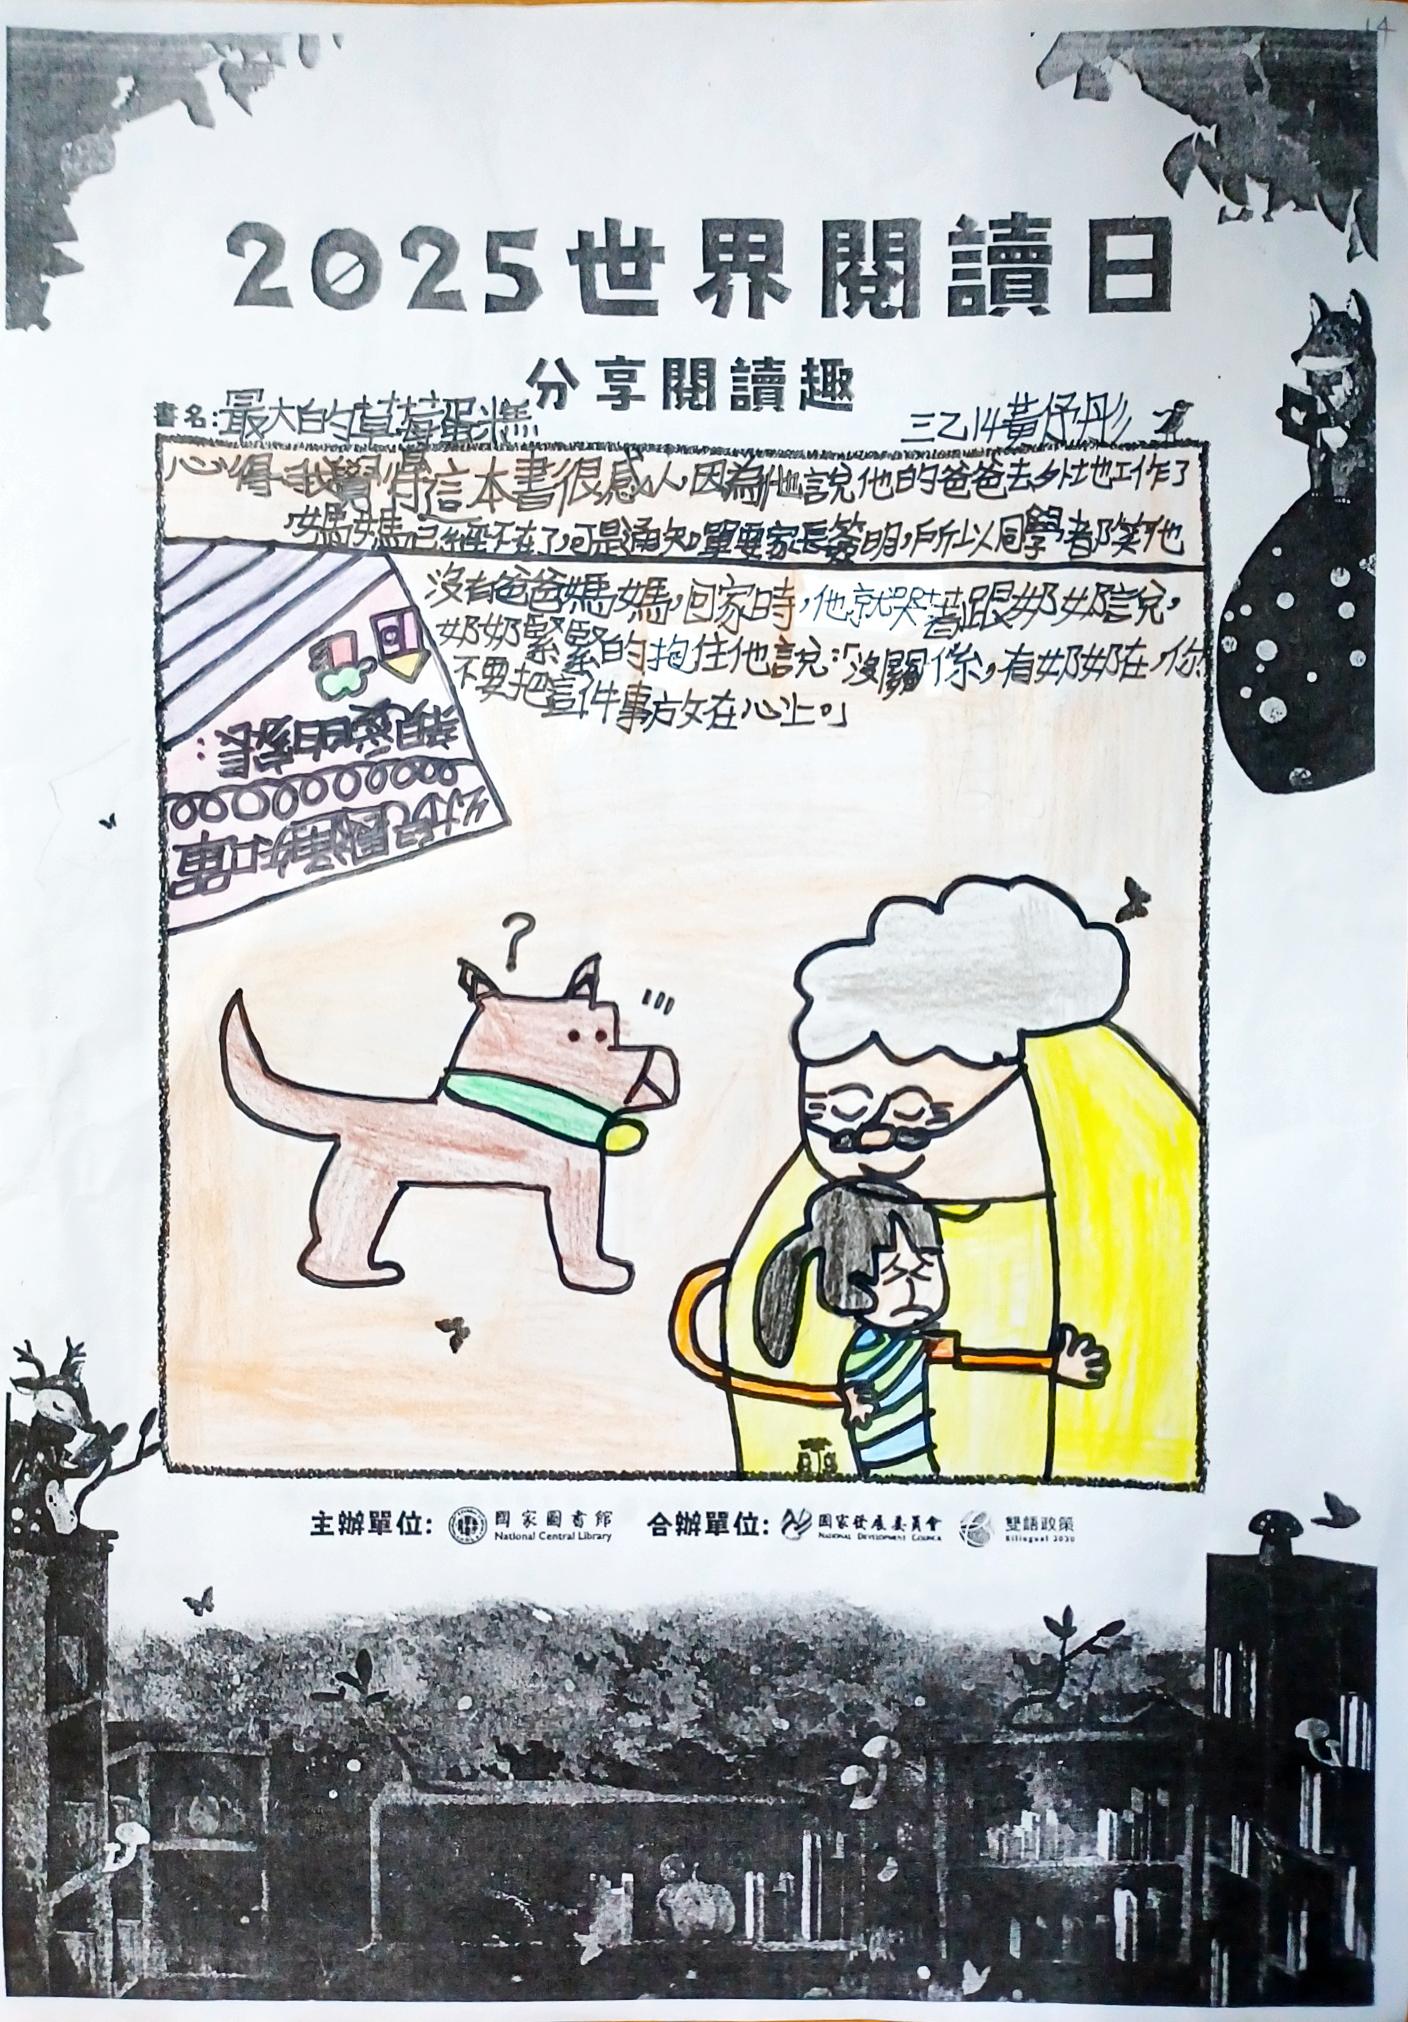 14
2025世界閱讀日
分享閱讀趣
書名:最大的草莓蛋糕
三乙14黃伃彤
心得:我覺得這本書很感人,因為他說他的爸爸去外地工作了
媽媽已經不在了,可是通知單要家長簽明,所以同學都笑他
沒有爸爸媽媽,回家時,他就哭著跟奶奶說,
奶奶緊緊的抱住他說:「沒關係,有奶奶在,你
不要把這件事放在心上。」
幼兒園通知單
親愛的家長:
?
主辦單位: 國家圖書館 合辦單位: 國家發展委員會 雙語政策
National Central Library NATIONAL DEVELOPMENT COUNCIL Bilingual 2030